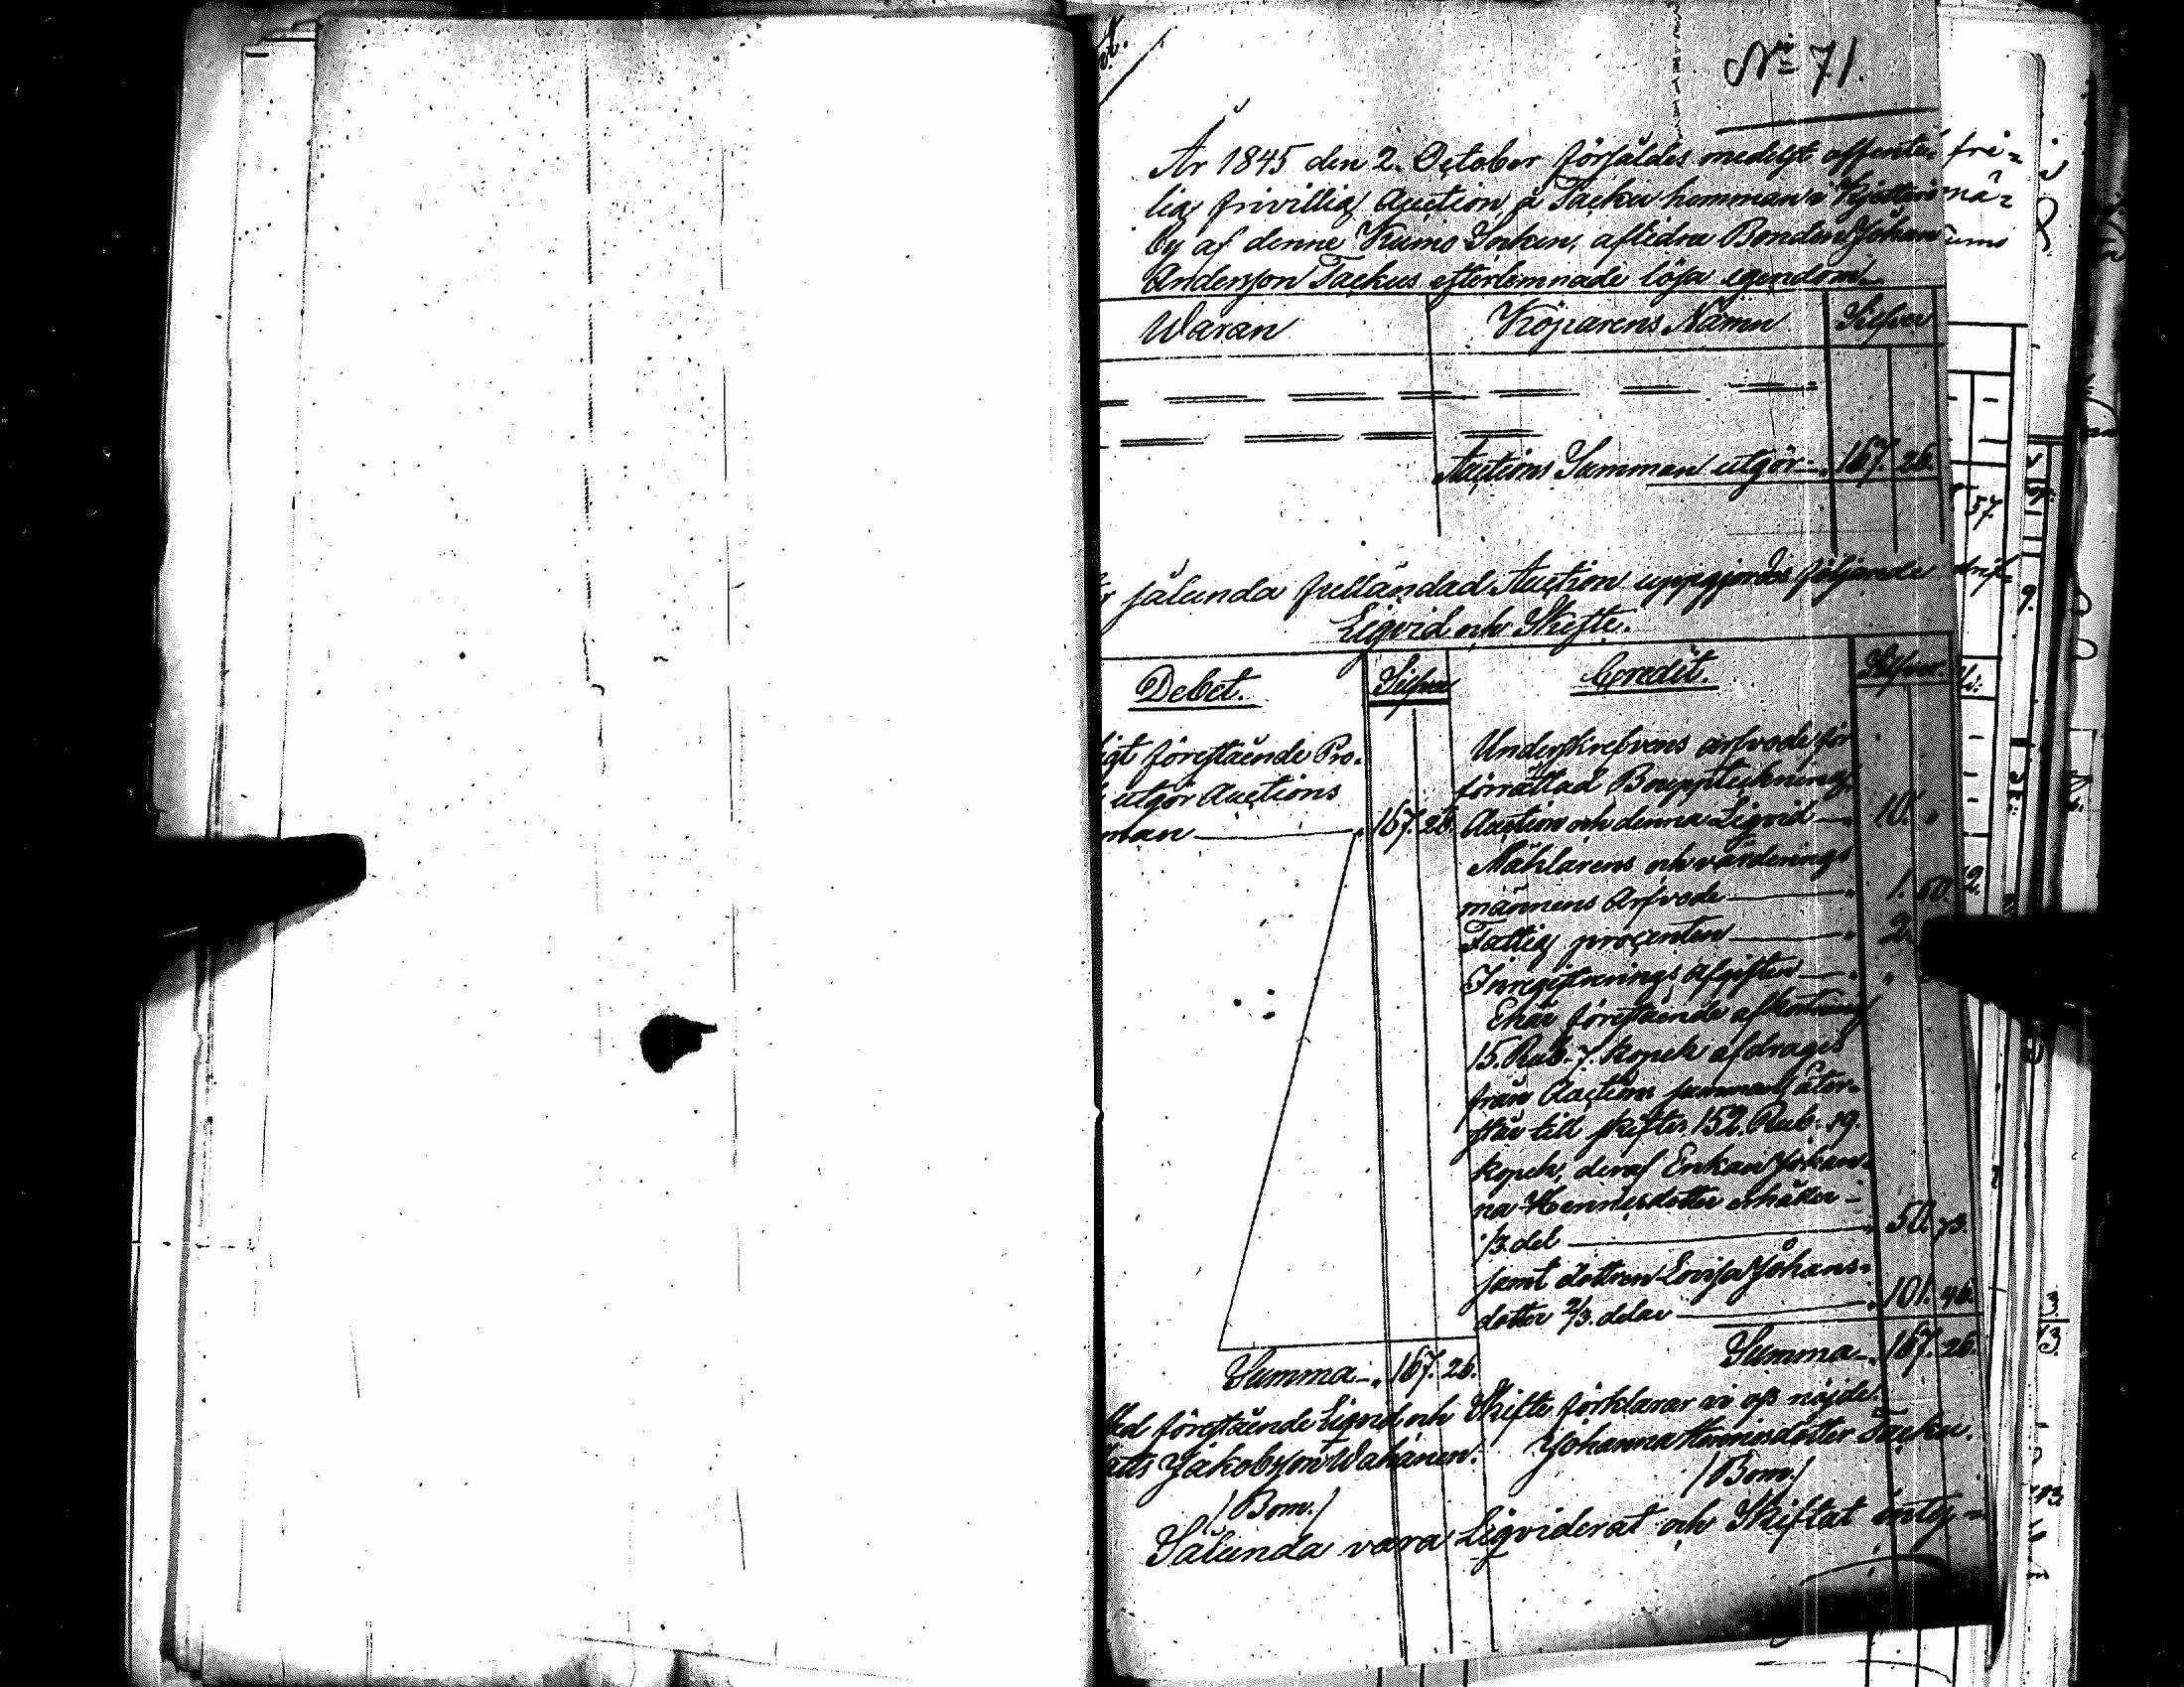 No 71.
År 1845 den 2. October försåldes medelst offent-
lig frivillig Auction å Tacku hemman i
by af denne Kumo Socken, aflidne Bonden Johan
Andersson Tackus efterlemnade lösa egendom
Waran Köparens Namn Silfver
Auctions Summan utgör 167. 26.
sålunda fulländad Auction uppgjordes följande
Liqvid och Skifte.
Debet. Silfver Credit. Silfver.
förestående Pro-
utgör Auctions
man 167. 26.
Underskrefvens arfvode för
förrättad Bouppteckning,
Auction och denna Liqvid 10. "
Mäklarens och värderings
männens Arfvode 1. 50.
Fattig procenten 2.
Inregistrerings afgiften "
Enär förestående afkortning
15. Rub. 7. kopek afdrages
från Auctions summan, åter-
står till skiftes 152. Rub. 19.
kopek, deraf Enkan Johan-
na Hennriksdotter erhåller
1/3. del 50. 73.
samt dottren Lovisa Johans-
dotter 2/3. delar 101. 46.
Summa 167. 26. Summa 167. 26.
Med förestående Liqvid och Skifte förklarar vi oss nöjde.
Jakobsson Wahanen. Johanna Tacku.
(Bom.) (Bom.)
Sålunda vara Liqviderat och Skiftat inty-